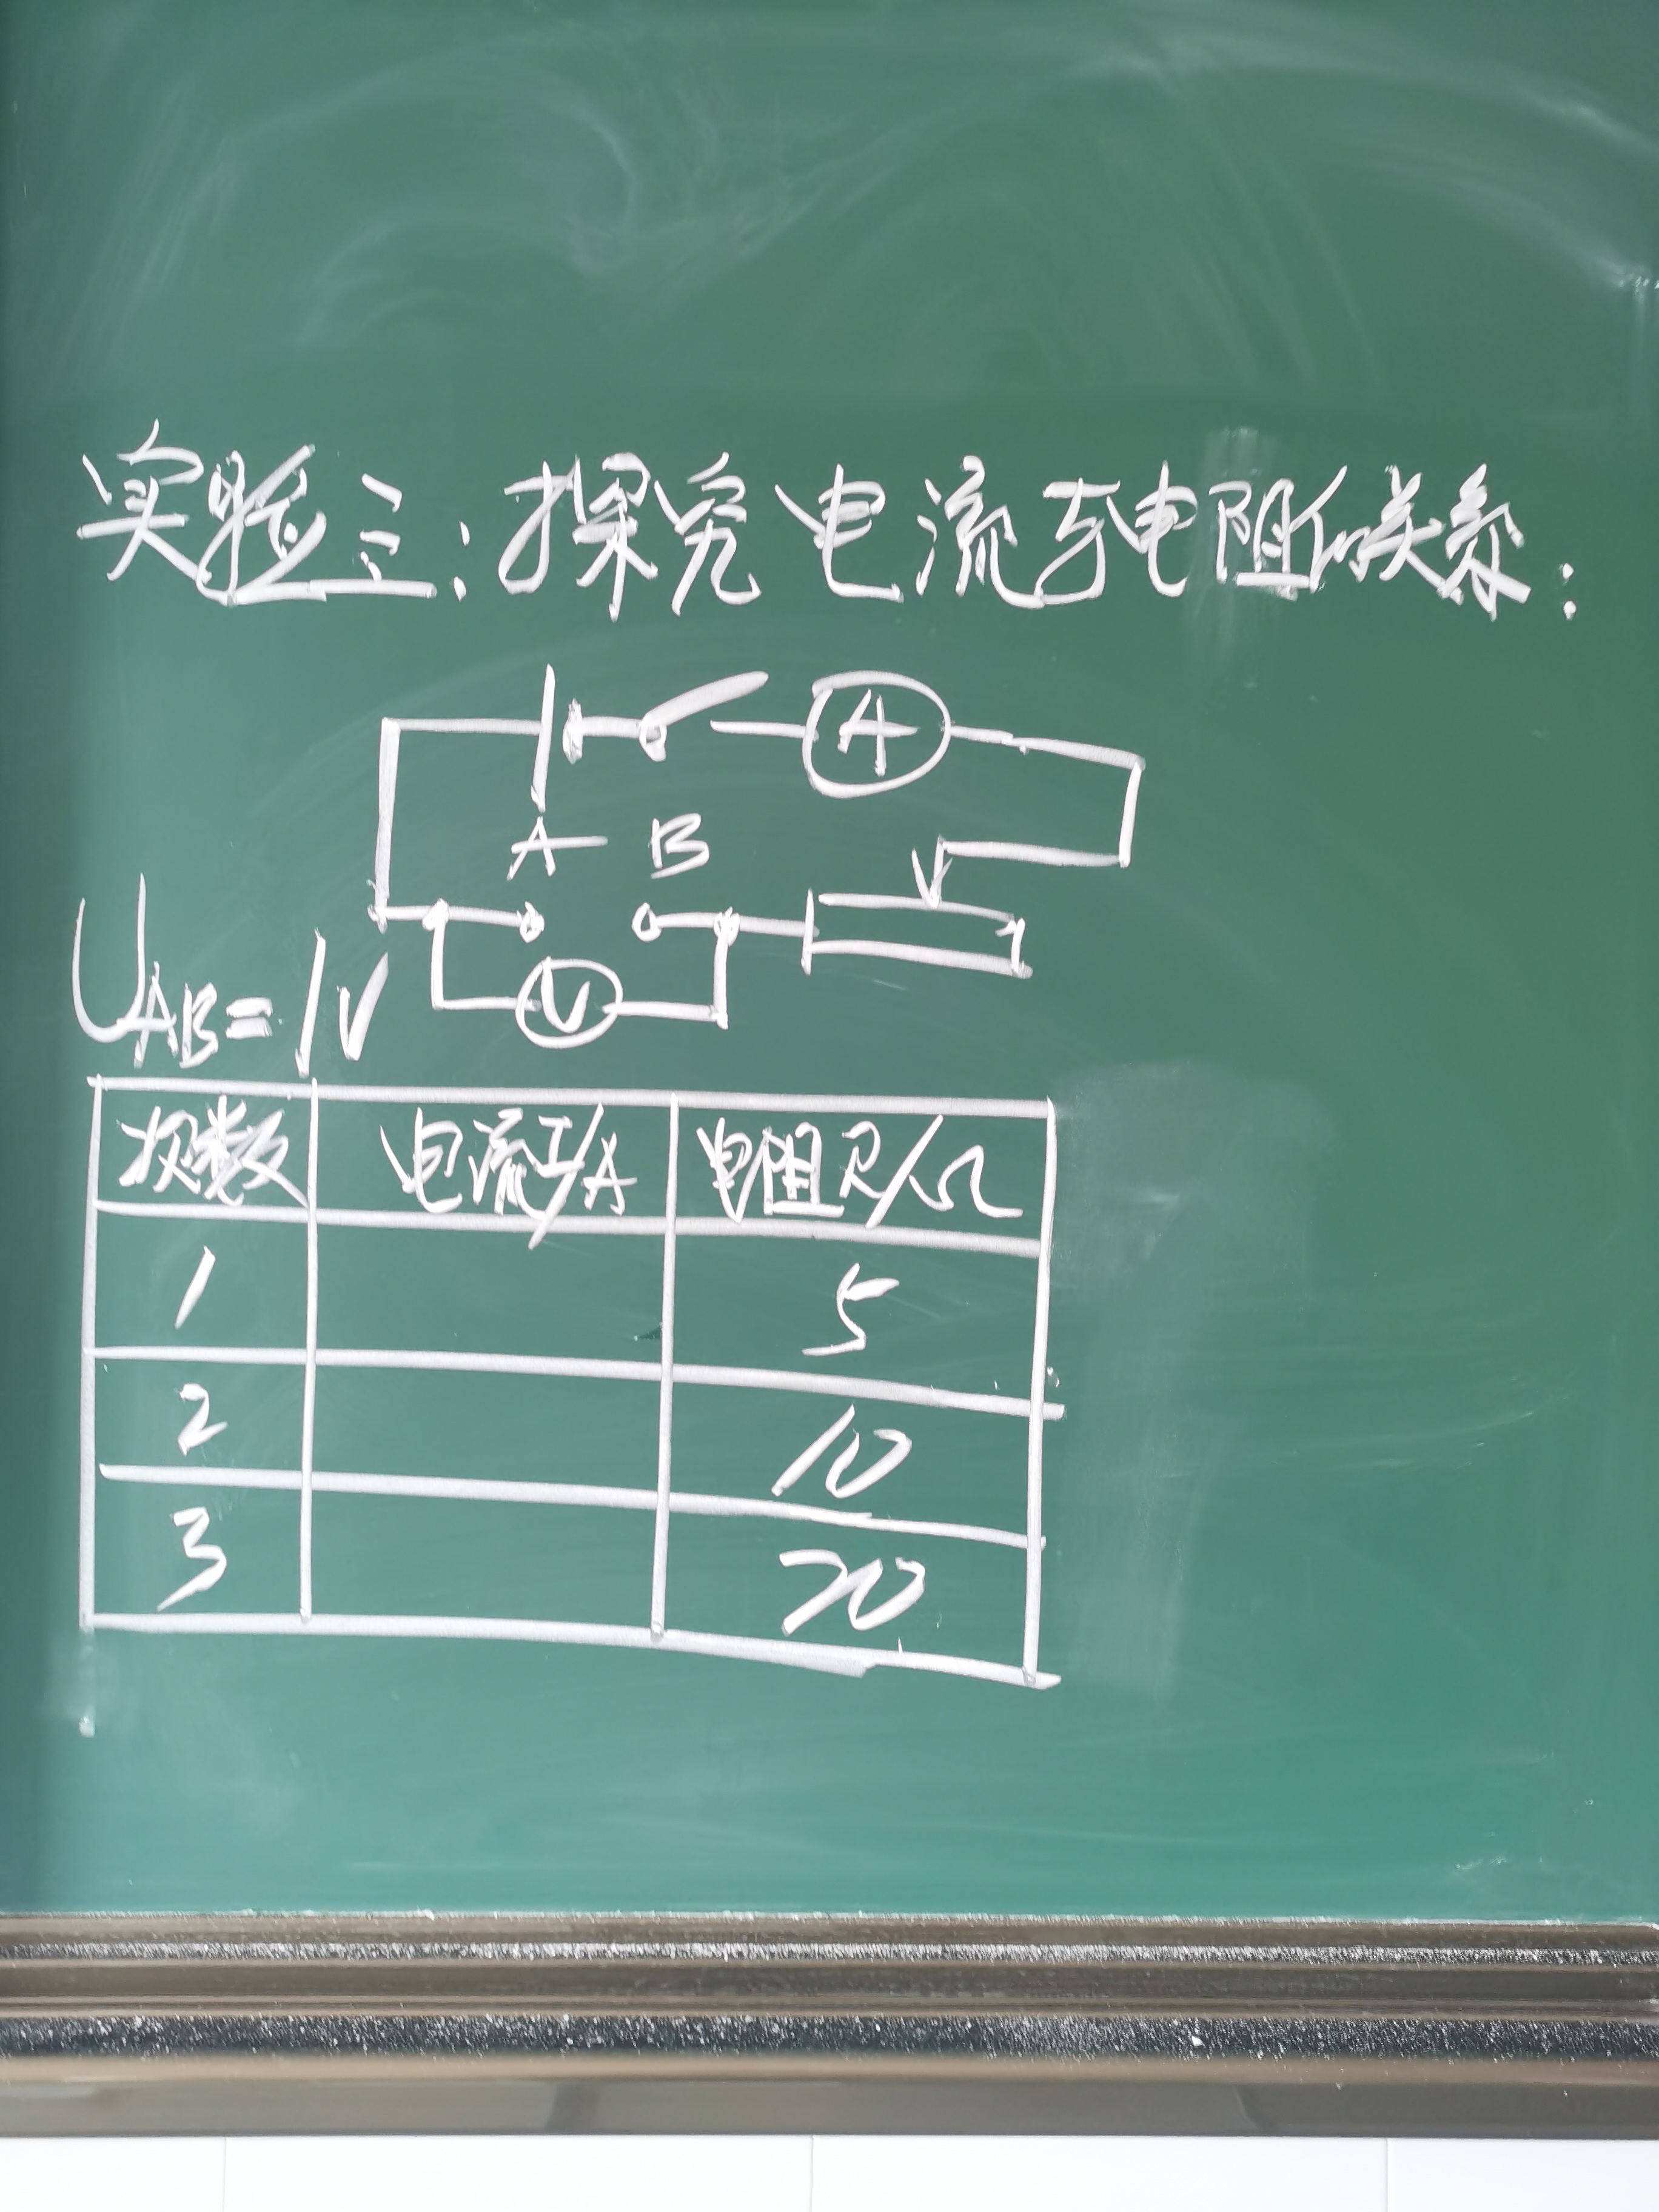 实验三:探究电流与电阻的关系:
A
A B
V
U_AB=1V
次数 电流I/A 电阻R/Ω
1 5
2 10
3 20